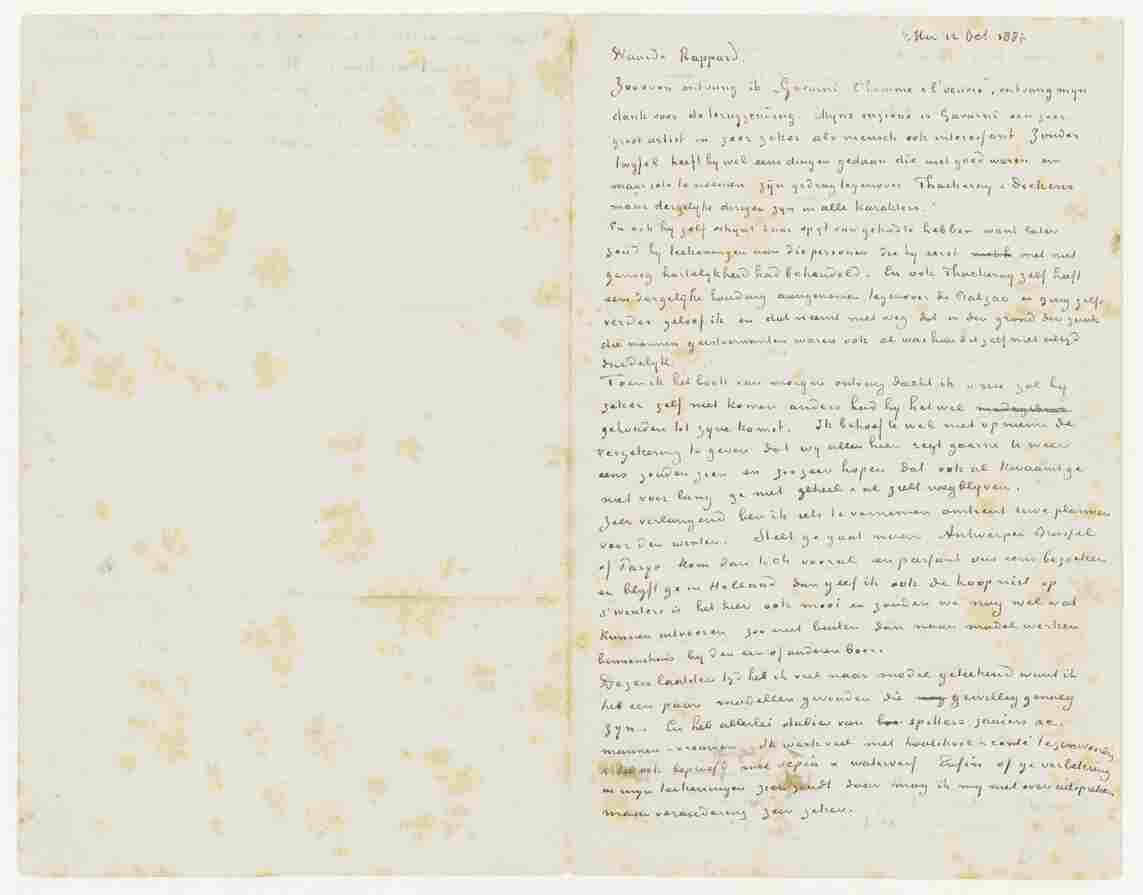 Etten 12 Oct. 1881
Waarde Rappard,
Zooeven ontvang ik „Gavarni l'homme & l'oeuvre", ontvang mijn
dank voor de terugzending. Mijns inziens is Gavarni een zeer
groot artist en zeer zeker als mensch ook interessant. Zonder
twyfel heeft hy wel eens dingen gedaan die niet goed waren om
maar iets te noemen zijn gedrag tegenover Thackeray & Dickens
maar dergelyke dingen zyn in alle karakters.
En ook hy zelf schynt daar spyt van gehad te hebben want later
zond hy teekeningen aan die personen die hy eerst met niet
genoeg hartelykheid had behandeld. En ook Thackeray zelf heeft
een dergelyke houding aangenomen tegenover de Balzac en ging zelfs
verder geloof ik en dat neemt niet weg dat in den grond der zaak
die mannen geestverwanten waren ook al was hun dit zelf niet altyd
duidelyk.
Toen ik het boek van morgen ontving dacht ik nu zal hy
zeker zelf niet komen anders had hy het wel
gehouden tot zyne komst. Ik behoef U wel niet op nieuw de
verzekering te geven dat wy allen hier zegt gaarne U weer
eens zouden zien en zoozeer hopen dat ook al kwaamt ge
niet voor lang ge niet geheel & al zult wegblyven.
Zeer verlangend ben ik iets te vernemen omtrent uwe plannen
voor den winter. Stelt ge gaat naar Antwerpen Brussel
of Parys kom dan toch vooral en passant ons eens bezoeken
en blyft ge in Holland dan geef ik ook de hoop niet op
s'winters is het hier ook mooi en zouden we nog wel wat
kunnen uitvoeren zoo niet buiten dan naar model werken
binnenshuis by den een of anderen boer.
Dezen laatsten tyd heb ik veel naar model geteekend want ik
heb een paar modellen gevonden die gewillig genoeg
zyn. En heb allerlei studies van spitters zaaiers &c.
mannen & vrouwen. Ik werk veel met houtskool & conté tegenwoordig
& heb ook beproefd met sepia & waterverf. Enfin of ge verbetering
in myn teekeningen zien zoudt daar mag ik my niet over uitspreken
maar verandering zeer zeker.